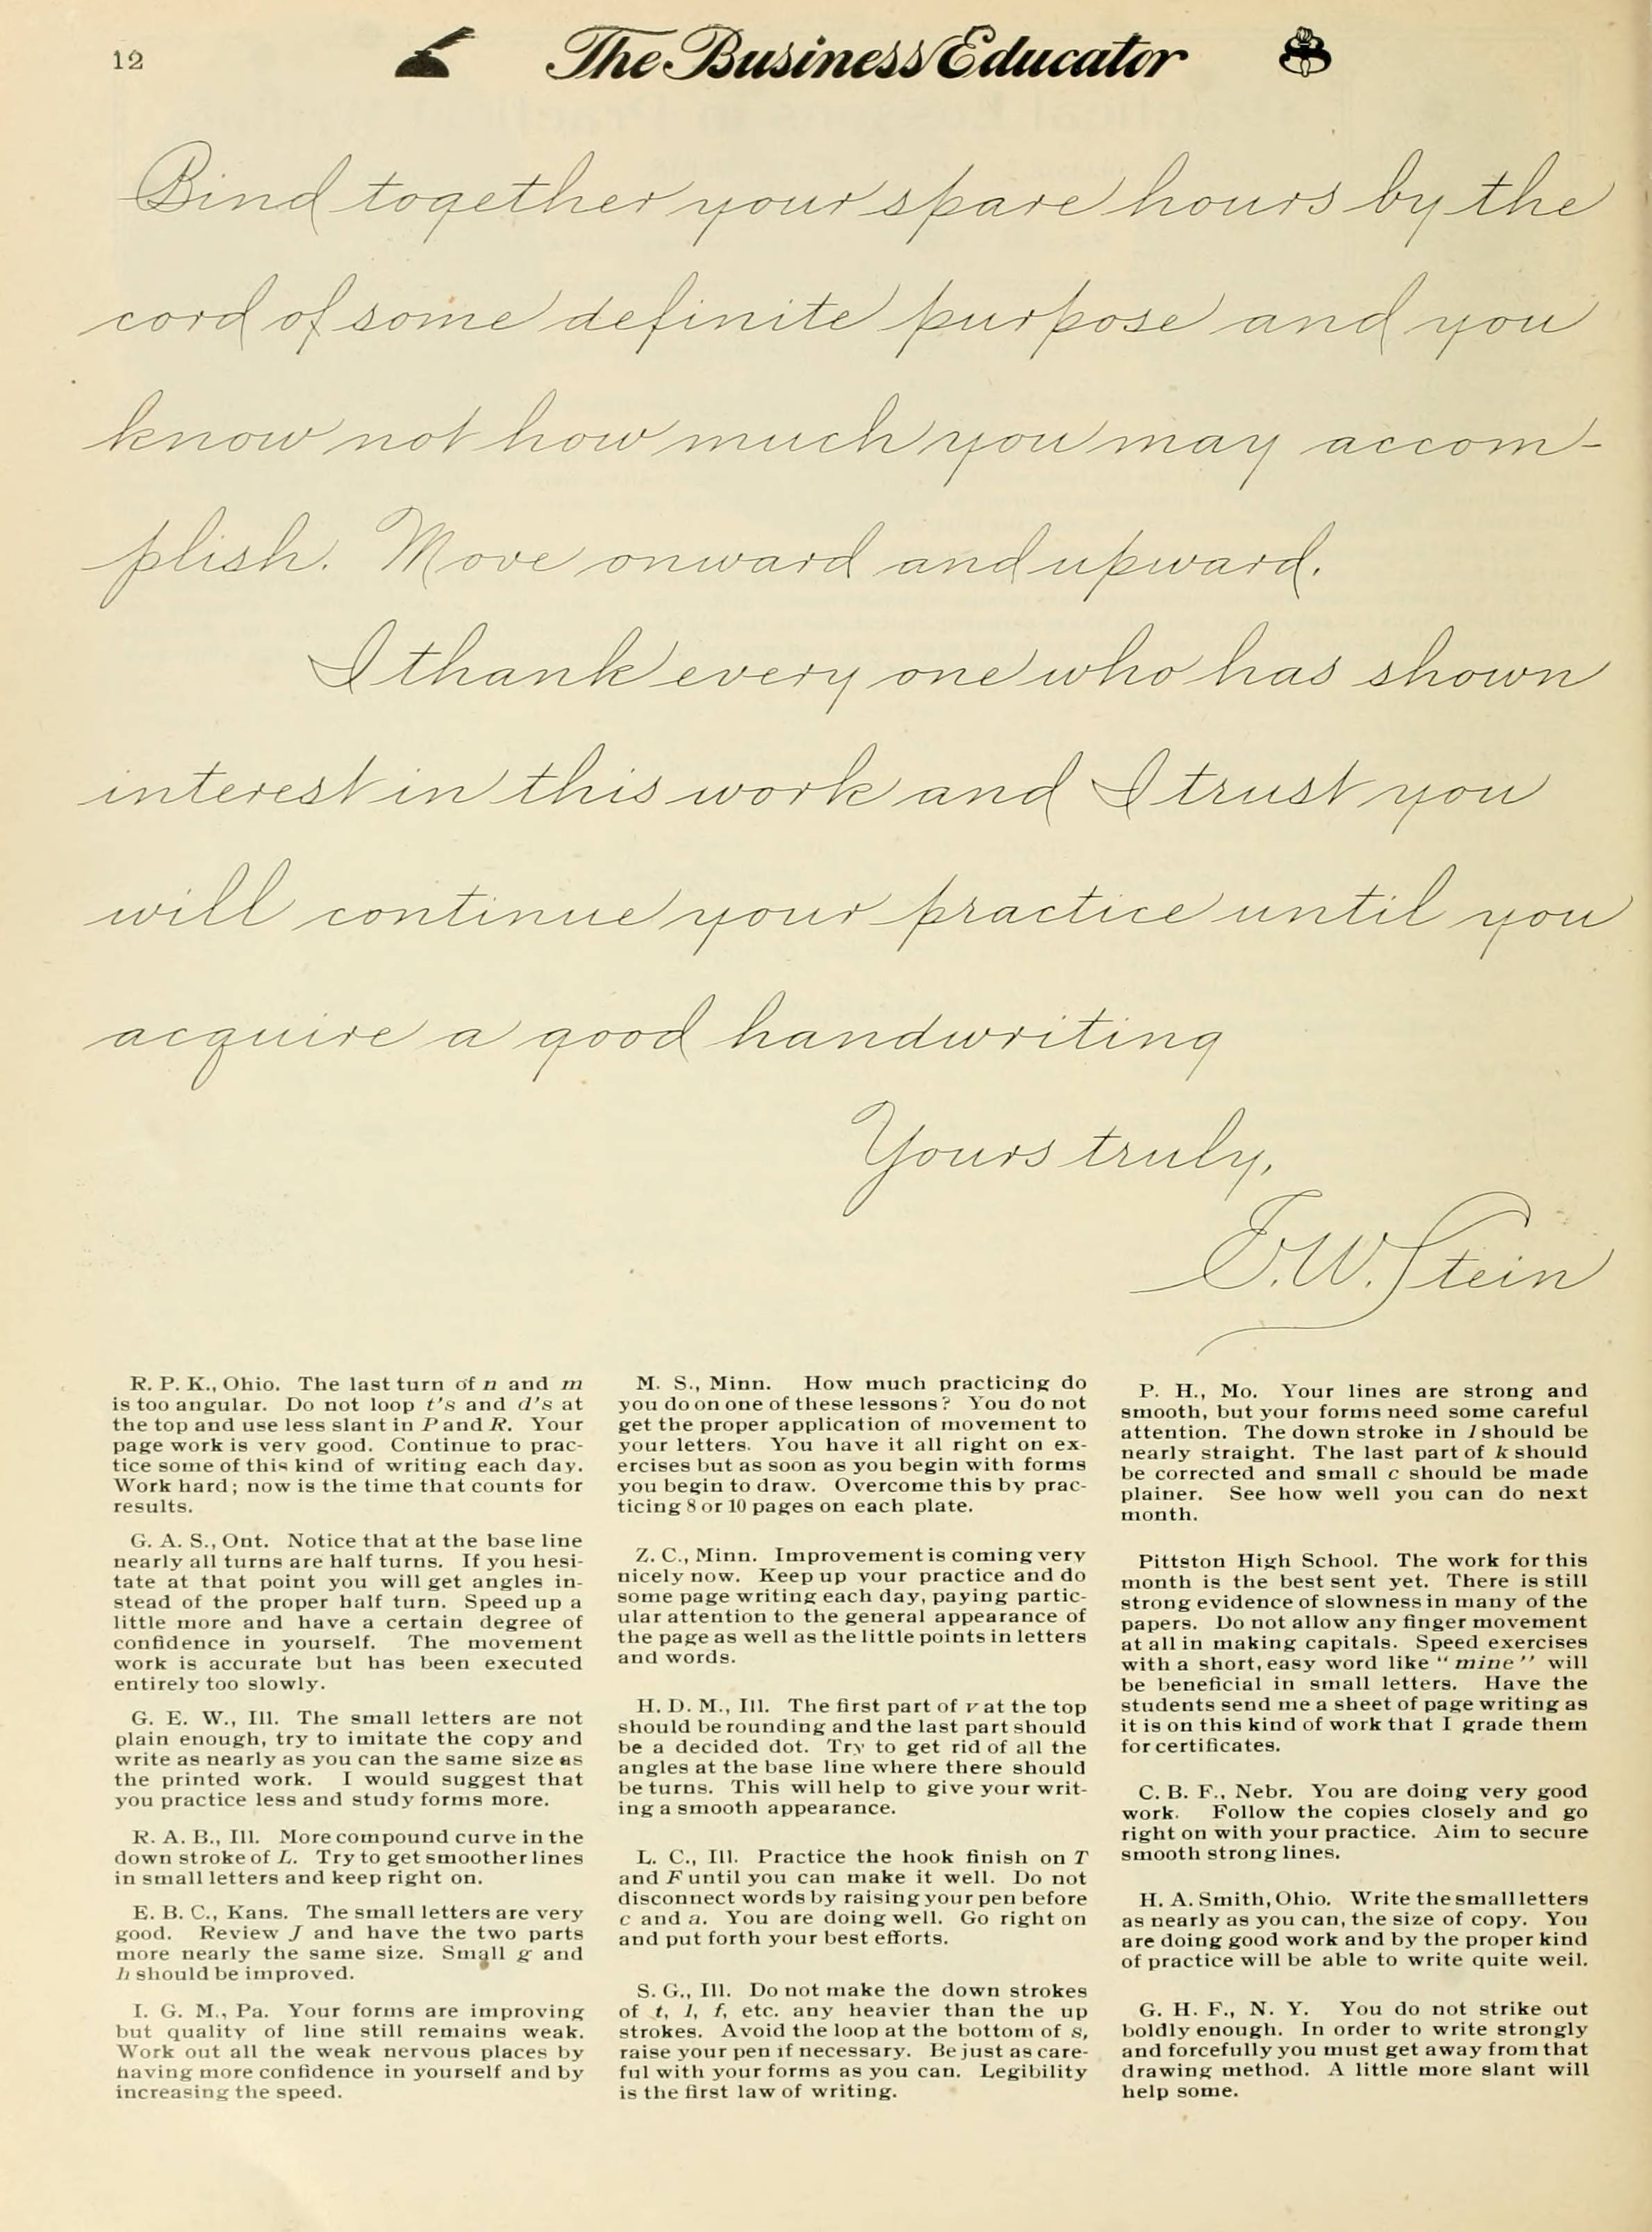 12
The Business Educator
Bind together your spare hours by the
cord of some definite purpose and you
know not how much you may accom-
plish. Move onward and upward.
I thank every one who has shown
interest in this work and I trust you
will continue your practice until you
acquire a good handwriting
Yours truly,
E.W. Stein
R. P. K., Ohio. The last turn of n and m
is too angular. Do not loop t's and d's at
the top and use less slant in P and R. Your
page work is very good. Continue to prac-
tice some of this kind of writing each day.
Work hard; now is the time that counts for
results.
G. A. S., Ont. Notice that at the base line
nearly all turns are half turns. If you hesi-
tate at that point you will get angles in-
stead of the proper half turn. Speed up a
little more and have a certain degree of
confidence in yourself. The movement
work is accurate but has been executed
entirely too slowly.
G. E. W., Ill. The small letters are not
plain enough, try to imitate the copy and
write as nearly as you can the same size as
the printed work. I would suggest that
you practice less and study forms more.
R. A. B., Ill. More compound curve in the
down stroke of L. Try to get smoother lines
in small letters and keep right on.
E. B. C., Kans. The small letters are very
good. Review J and have the two parts
more nearly the same size. Small g and
h should be improved.
I. G. M., Pa. Your forms are improving
but quality of line still remains weak.
Work out all the weak nervous places by
having more confidence in yourself and by
increasing the speed.
M. S., Minn. How much practicing do
you do on one of these lessons? You do not
get the proper application of movement to
your letters. You have it all right on ex-
ercises but as soon as you begin with forms
you begin to draw. Overcome this by prac-
ticing 8 or 10 pages on each plate.
Z. C., Minn. Improvement is coming very
nicely now. Keep up your practice and do
some page writing each day, paying partic-
ular attention to the general appearance of
the page as well as the little points in letters
and words.
H. D. M., Ill. The first part of v at the top
should be rounding and the last part should
be a decided dot. Try to get rid of all the
angles at the base line where there should
be turns. This will help to give your writ-
ing a smooth appearance.
L. C., Ill. Practice the hook finish on T
and F until you can make it well. Do not
disconnect words by raising your pen before
c and a. You are doing well. Go right on
and put forth your best efforts.
S. G., Ill. Do not make the down strokes
of t, l, f, etc. any heavier than the up
strokes. Avoid the loop at the bottom of s,
raise your pen if necessary. Be just as care-
ful with your forms as you can. Legibility
is the first law of writing.
P. H., Mo. Your lines are strong and
smooth, but your forms need some careful
attention. The down stroke in l should be
nearly straight. The last part of k should
be corrected and small c should be made
plainer. See how well you can do next
month.
Pittston High School. The work for this
month is the best sent yet. There is still
strong evidence of slowness in many of the
papers. Do not allow any finger movement
at all in making capitals. Speed exercises
with a short, easy word like "mine" will
be beneficial in small letters. Have the
students send me a sheet of page writing as
it is on this kind of work that I grade them
for certificates.
C. B. F., Nebr. You are doing very good
work. Follow the copies closely and go
right on with your practice. Aim to secure
smooth strong lines.
H. A. Smith, Ohio. Write the small letters
as nearly as you can, the size of copy. You
are doing good work and by the proper kind
of practice will be able to write quite well.
G. H. F., N. Y. You do not strike out
boldly enough. In order to write strongly
and forcefully you must get away from that
drawing method. A little more slant will
help some.